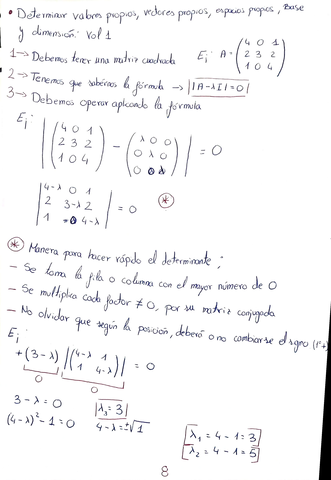 • Determinar valores propios, vectores propios, espacios propios, Base
y dimensión: Vol 1
1 → Debemos tener una matriz cuadrada Ej: A = (4 0 1
2 3 2
1 0 4)
2 → Tenemos que sabernos la fórmula → |A-λI|=0
3 → Debemos operar aplicando la fórmula
Ej:
|(4 0 1) - (λ 0 0)| = 0
(2 3 2) (0 λ 0)
(1 0 4) (0 0 λ)
|4-λ 0 1|
|2 3-λ 2| = 0 *
|1 0 4-λ|
* Manera para hacer rápido el determinante;
- Se toma la fila o columna con el mayor número de 0
- Se multiplica cada factor ≠ 0, por su matriz conjugada
- No olvidar que según la posición, deberá o no cambiarse el signo
Ej:
+(3-λ) |(4-λ 1)| = 0
(1 4-λ)
0 0
3-λ=0 λ₃=3
(4-λ)²-1=0 4-λ=±√1 [λ₁ = 4-1=3]
[λ₂ = 4-1=5]
8